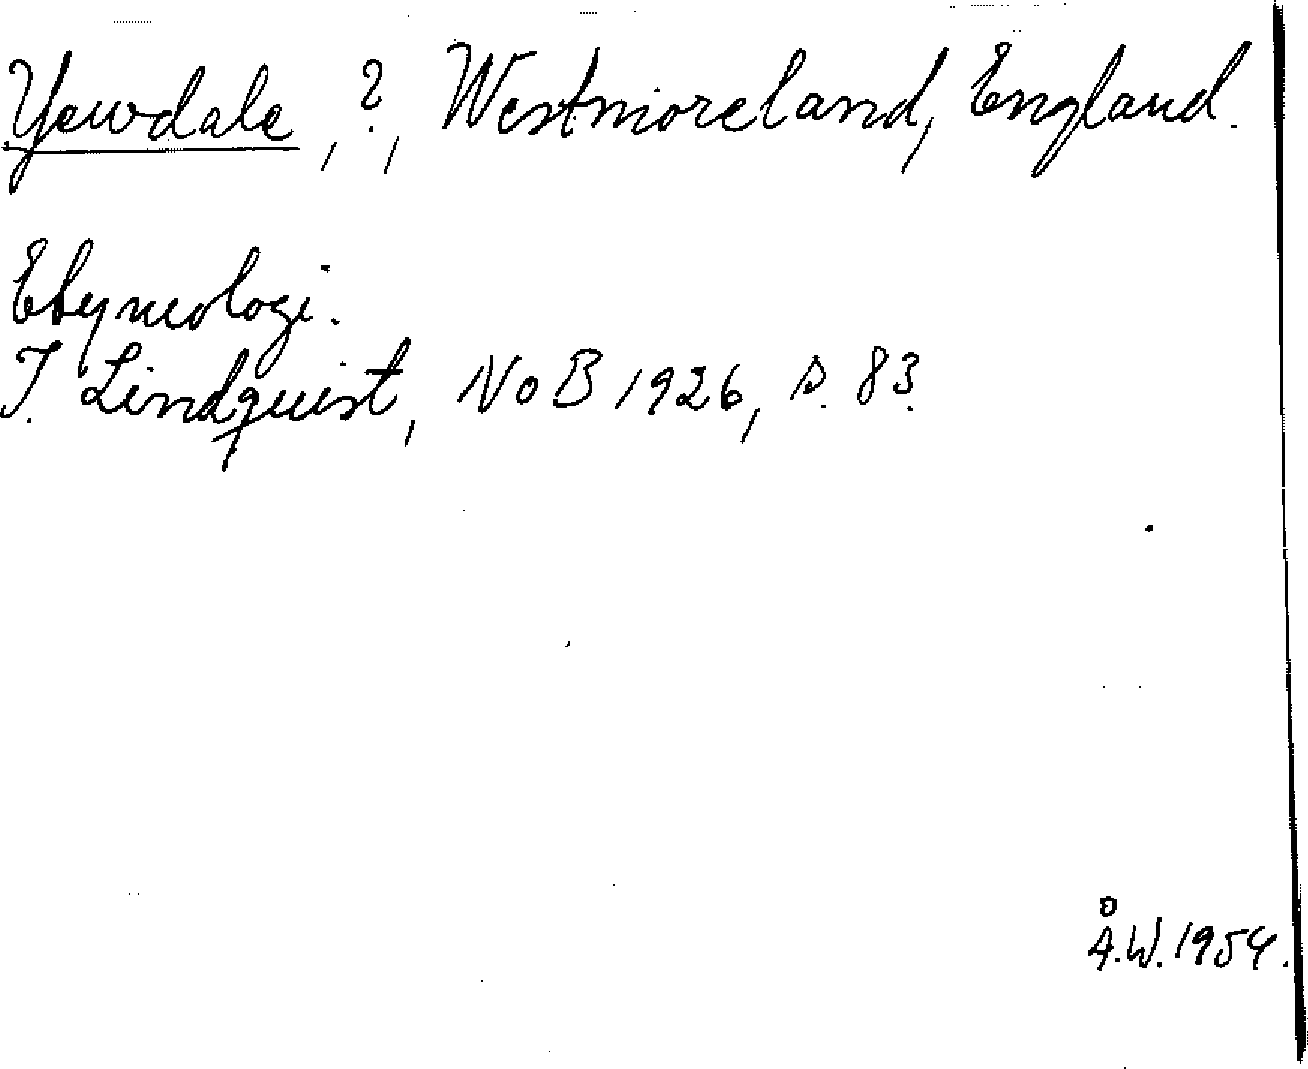 Yewdale, ?, Westmoreland, England.
Etymologi.
I. Lindquist, NoB 1926, s. 83.
Å.W. 1954.